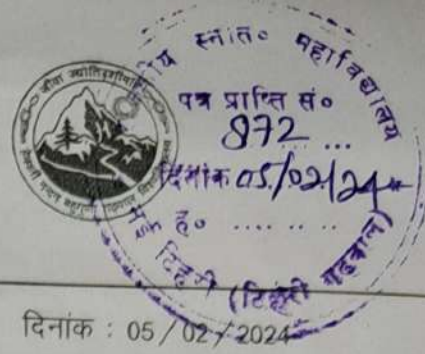 स्नात० महाविद्यालय
पत्र प्राप्ति सं०
872 ... 
दिनांक 05/02/24
ह० .... ....
नई टिहरी (टिहरी गढ़वाल)
दिनांक : 05 / 02 / 2024